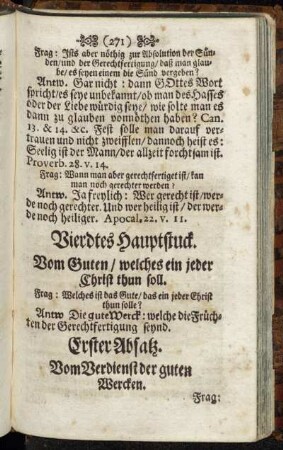 (271)
Frag: Ists aber nöthig zur Absolution der Sün-
den/und der Gerechtfertigung/ daß man glau-
be/ es seyen einem die Sünd vergeben?
Antw. Gar nicht: dann GOttes Wort
spricht/es seye unbekannt/ob man des Hasses
oder der Liebe würdig seye/ wie solte man es
dann zu glauben vonnöthen haben? Can.
13. & 14. &c. Fest solle man darauf ver-
trauen und nicht zweifflen/ dannoch heist es:
Seelig ist der Mann/ der allzeit forchtsam ist.
Proverb. 28. v. 14.
Frag: Wann man aber gerechtfertiget ist/ kan
man noch gerechter werden?
Antw. Ja freylich: Wer gerecht ist/wer-
de noch gerechter. Und wer heilig ist/ der wer-
de noch heiliger. Apocal. 22. v. 11.
Vierdtes Hauptstuck.
Vom Guten/ welches ein jeder
Christ thun soll.
Frag: Welches ist das Gute/ das ein jeder Christ
thun solle?
Antw Die gute Werck: welche die Früch-
ten der Gerechtfertigung seynd.
Erster Absatz.
Vom Verdienst der guten
Wercken.
Frag: